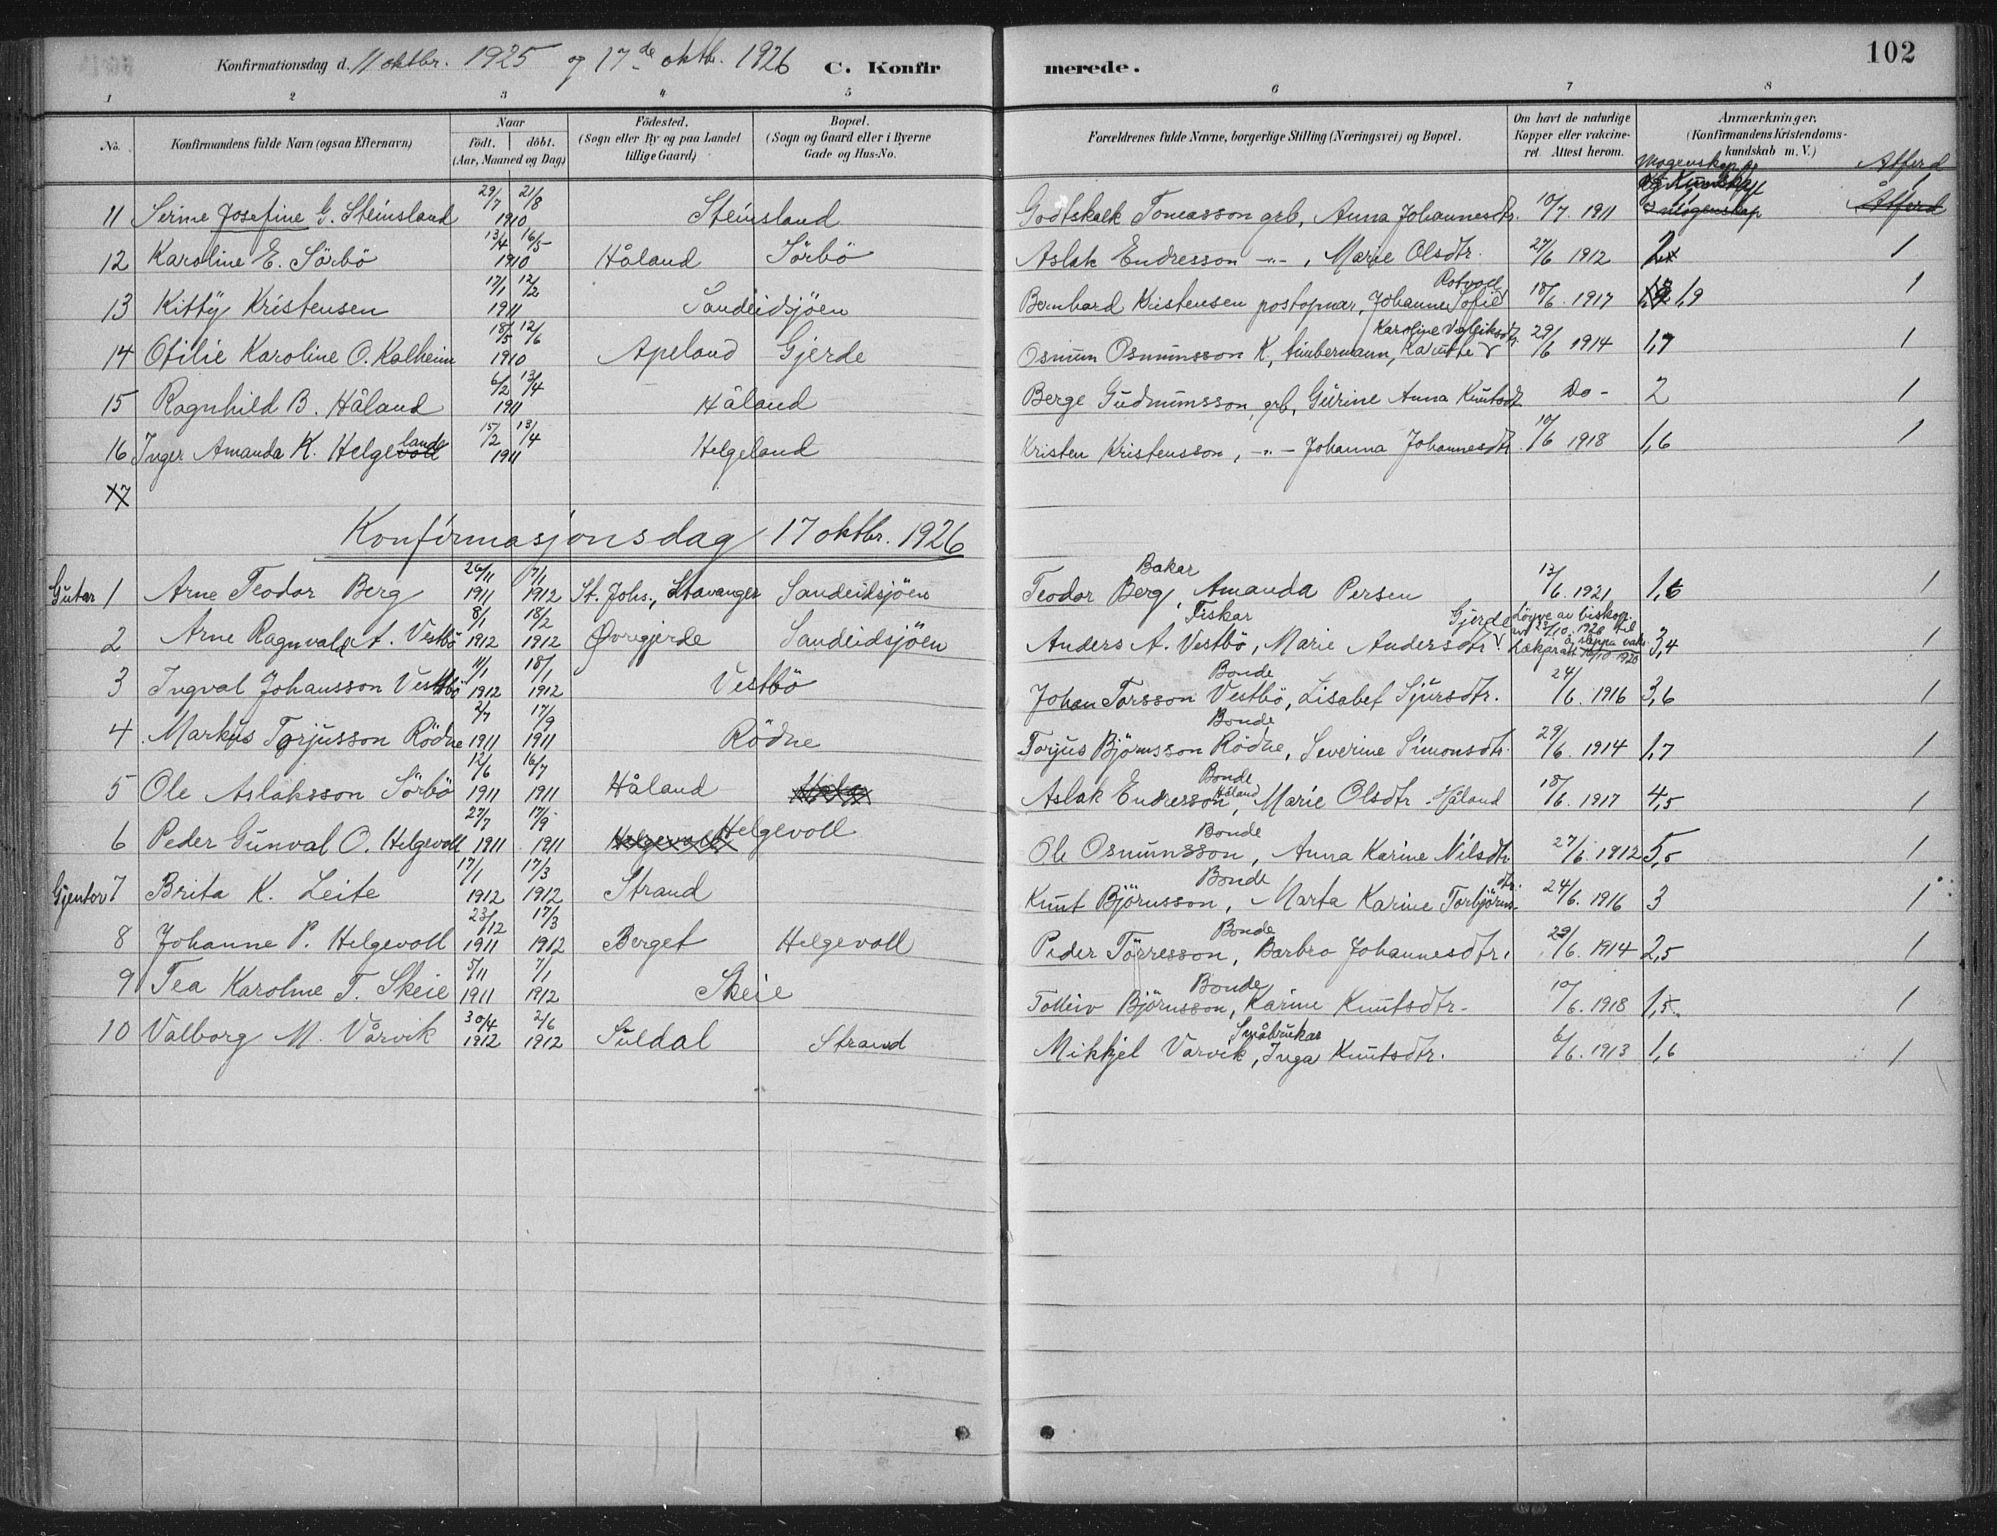 Konfirmationsdag d. 11 oktbr. 1925 og 17de oktb. 1926 C. Konfirmerede. 102
1 2 3 4 5 6 7 8
No. Konfirmandens fulde Navn (ogsaa Efternavn) Naar født. døbt. (Aar, Maaned og Dag) Fødested. (Sogn eller By og paa Landet tillige Gaard) Bopæl. (Sogn og Gaard eller i Byerne Gade og Hus-No. Forældrenes fulde Navne, borgerlige Stilling (Næringsvei) og Bopæl. Om havt de naturlige Kopper eller vakcineret. Attest herom. Anmærkninger. (Konfirmandens Kristendomskundskab m. V.)
Mogenskap Åtferd
11 Serine Josefine G. Steinsland 29/7 1910 21/8 Steinsland Godtskalk Tomasson grb, Anna Johannesdtr. 10/7 1911 mogenskap Åtferd 1
12 Karoline E. Sörbö 13/4 1910 16/5 Håland Sörbö Aslak Endresson -"-, Marie Olsdtr. 27/6 1912 2 1
13 Kitty Kristensen 17/1 1911 12/2 Sandeidsjöen Bernhard Kristensen postopnar, Johanne Sofie Rotvoll 18/6 1917 1,9 1
14 Otilie Karoline O. Kalheim 18/5 1910 12/6 Apeland Gjerde Osmun Osmunsson K, timbermann, Karoline 29/6 1914 1,7 1
15 Ragnhild B. Håland 6/2 1911 13/4 Håland Berge Gudmunsson, grb, Gurine Anna Knutsdt Do - 2 1
16 Inger Amanda K. Helgeland 15/2 1911 13/4 Helgeland Kristen Kristensson, -"- Johanna Johannesdtr. 10/6 1918 1,6 1
17
Konfirmasjonsdag 17 oktbr. 1926
Gutar 1 Arne Teodor Berg 26/11 1911 7/1 1912 St. Johs., Stavanger Sandeidsjöen Teodor Berg, Bakar Amanda Persen 13/6. 1921 1,6 1
2 Arne Ragnvald A. Vestbö 8/1 1912 18/2 1912 Øvregjerde Sandeidsjöen Anders A. Vestbö, Fiskar Marie Andersdtr Gjerde Löyve av biskop 23/10. 1926 til å sleppa 3,4 1
3 Ingval Johansson Vestbö 11/1 1912 18/1 1912 Vestbö Johan Torsson Vestbö, Bonde Lisabet Sjursdtr. 24/6. 1916 3,6 1
4 Markus Torjusson Rödne 2/7 1911 17/9 1911 Rödne Torjus Björnsson Rödne, Bonde Severine Simonsdtr. 29/6. 1914 1,7 1
5 Ole Aslaksson Sörbö 12/6 1911 16/7 1911 Håland Aslak Endresson, Bonde Håland Marie Olsdtr. Håland 18/6. 1917 4,5 1
6 Peder Gunval O. Helgevoll 27/7 1911 17/9 1911 Helgevoll Helgevoll Ole Osmunsson, Bonde Anna Karine Nilsdtr 27/6. 1912 5,5 1
Gjentor 7 Brita K. Leite 17/1 1912 17/3 1912 Strand Knut Björnsson, Bonde Marta Karine Torbjörnsdtr. 24/6. 1916 3 1
8 Johanne P. Helgevoll 23/12 1911 17/3 1912 Berget Helgevoll Peder Törresson, Bonde Barbro Johannesdtr. 29/6. 1914 2,5 1
9 Tea Karoline T. Skeie 5/11 1911 7/1 1912 Skeie Tolleiv Björnsson, Bonde Karine Knutsdtr. 10/6. 1918 1,5 1
10 Valborg M. Vårvik 30/4 1912 2/6 1912 Suldal Strand Mikkjel Vårvik, Småbrukar Inga Knutsdtr. 6/6. 1913 1,6 1